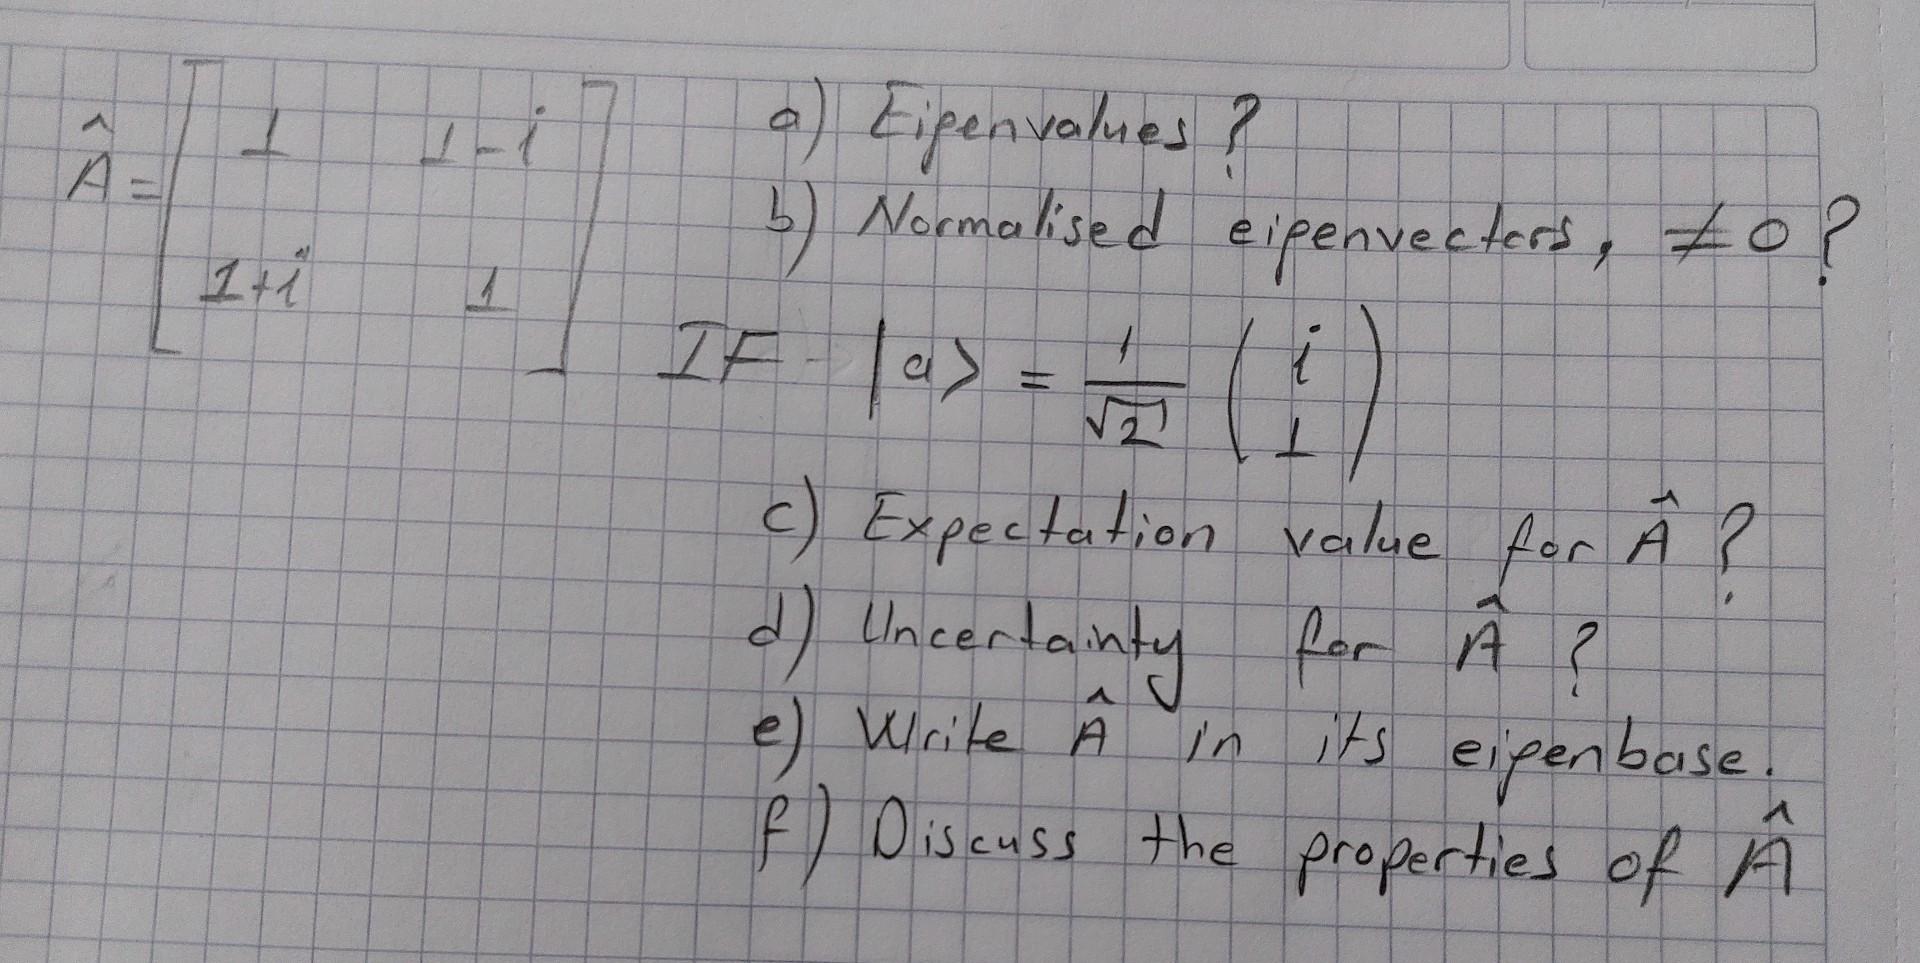 Â = [ 1 1-i
1+i 1 ]
a) Eigenvalues?
b) Normalised eigenvectors, ≠ 0?
IF |a> = 1/√2 ( i
1 )
c) Expectation value for Â?
d) Uncertainty for Â?
e) Write Â in its eigenbase.
f) Discuss the properties of Â